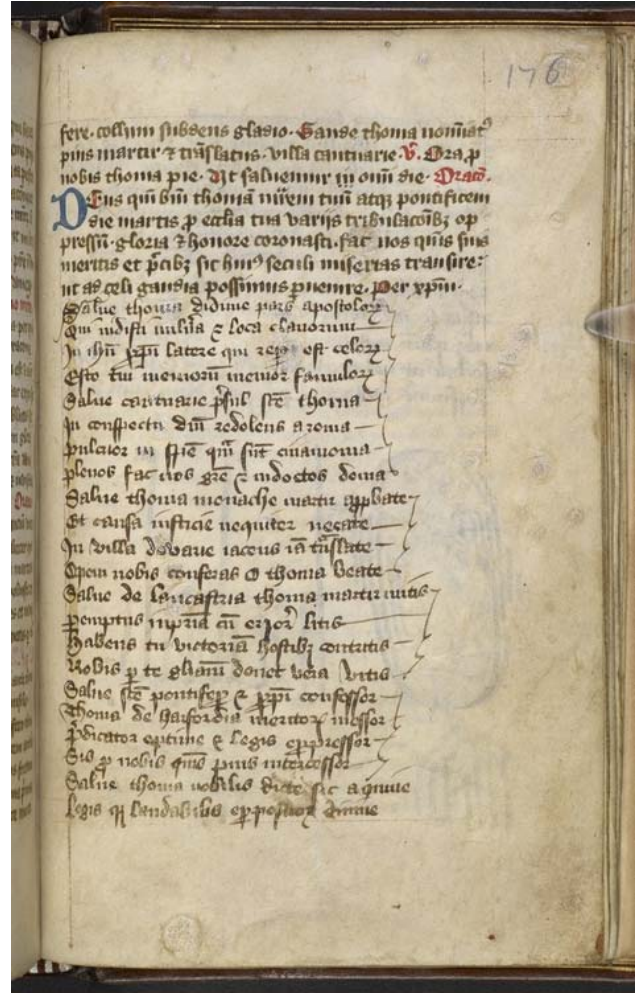 176
fere. collum subdens gladio. Gaude thoma nomīat᷒
pius martir ⁊ trāslatus. villa cantuarie. V̄. Ora ꝓ
nobis thoma pie. Ut saluemur in omī die. Oracō.
Deus qui bīm thomā mr̄em tuū atqꝫ pontificem
die martis ꝓ ecclīa tua varijs tribulacōibꝫ op
pressū. gloria ⁊ honore coronasti. fac nos qs̄ suis
meritis et p̄cibꝫ sic huiꝰ seculi miserias transire:
ut ad celi gaudia possimus ꝑuenire. Per xp̄m.
Salue thoma didime pars apostoloꝝ
Qui vidisti vulnīa ⁊ loca clauorum
In ihū xp̄i latere qui est celoꝝ
Esto tui memorū memor famuloꝝ
Salue cantuarie p̄sul sc̄e thoma
In conspectu dn̄i redolens aroma
pulcior in sp̄e qm̄ sūt cinamoma
plenos fac nos gr̄e ⁊ indoctos doma
Salue thoma monache martir apꝓbate
Et causa iusticie nequiter necate
In villa dovarie iacens iā trāslate
Opem nobis conferas O thoma beate
Salue de lancastria thoma martir mitis
ꝑemptus cū litis
Habens tu victoriā hostibꝫ contritis
Nobis ꝑ te gl̄iam donet vera vitis
Salue sc̄e pontifex ⁊ xp̄i confessor
Thoma de harfordia meritoꝝ messor
p̄dicator optime ⁊ legis expressor
Sis ꝓ nobis qs̄ pius intercessor
Salue thoma nobilis dicte sic aquine
legis qꝫ laudabilis expositor diuine